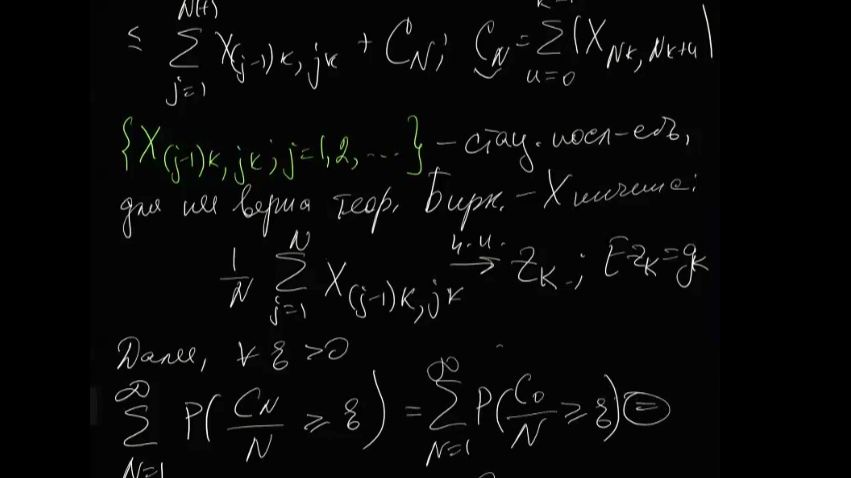 ≤ ∑_{j=1}^{N(t)} X_{(j-1)k, jk} + C_N; C_N = ∑_{u=0} |X_{Nk, Nk+u}|
{X_{(j-1)k, jk}; j=1,2,...} – стац. посл-сть,
для нее верна теор. Бирк. – Хинчина:
1/N ∑_{j=1}^{N} X_{(j-1)k, jk} →^{п.н.} Z_k; E Z_k = g_k
Далее, ∀ ε > 0
∑_{N=1}^{∞} P(C_N/N ≥ ε) = ∑_{N=1}^{∞} P(C_0/N ≥ ε) =